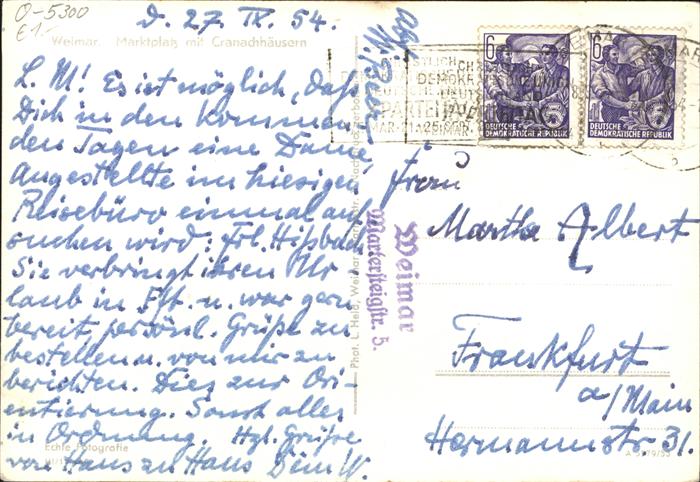 O-5300
€1.-
D. 27. IX. 54.
Weimar. Marktplatz mit Cranachhäusern
L. M! Es ist möglich, daß
Dich in den kommen-
den Tagen eine Dame
Angestellte im hiesigen
Reisebüro einmal auf
suchen wird: Frl. Hißbach
Sie verbringt ihren Ur
laub in Fft. u. war gern
bereit persönl. Grüße zu
bestellen u. von mir zu
berichten. Dies zur Ori-
entierung. Sonst alles
in Ordnung. Hzl. Grüße
von Haus zu Haus Dein W.
Echte Fotografie
Phot. L. Held, Weimar, Marienstr.
Abs.
Weimar
Martersteigstr. 5.
CHRISTLICH
DEMOKRATISCHE
PARTEITAG
6
DEUTSCHE
DEMOKRATISCHE REPUBLIK
6
DEUTSCHE
DEMOKRATISCHE REPUBLIK
Frau
Martha Albert
Frankfurt
a/Main
Hermannstr 31.